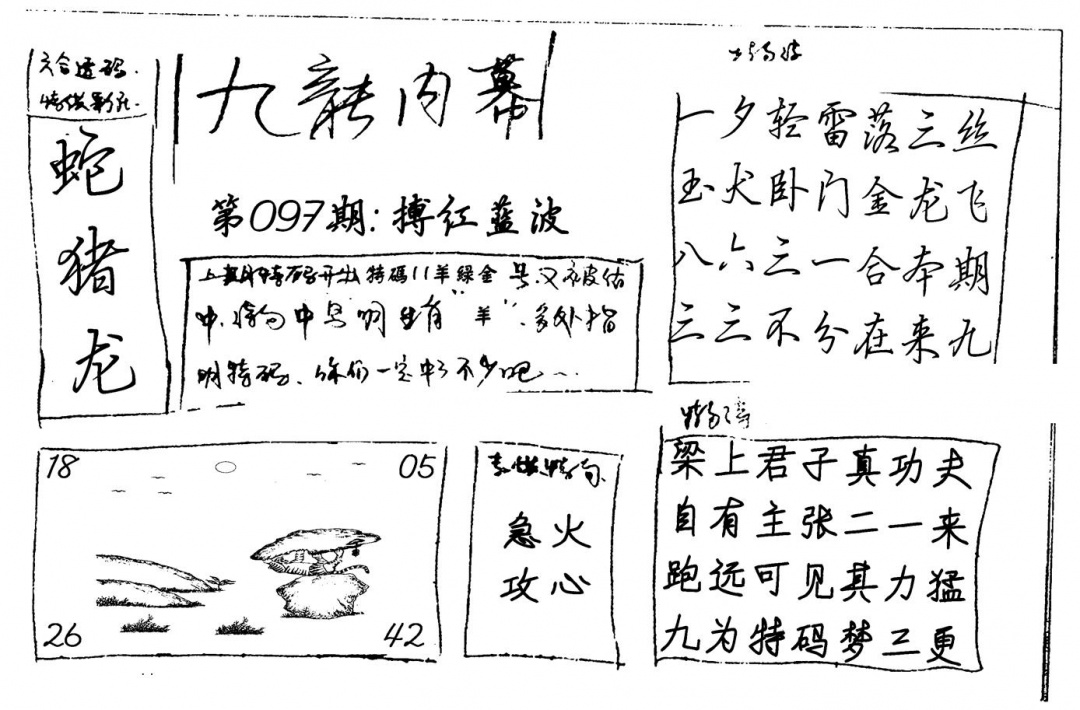 六合透码.
蛇
猪
龙
九龍内幕
第097期:搏红蓝波
上期特码开出特碼11羊綠金 号又被估
中.特句中号明生肖“羊”.多处指
明特码、你们一定中了不少吧
一夕轻雷落三丝
玉犬卧门金龙飞
八六三一合本期
三三不分在来九
18
05
26
42
急火
攻心
梁上君子真功夫
自有主张二一来
跑远可见其力猛
九为特码梦三更